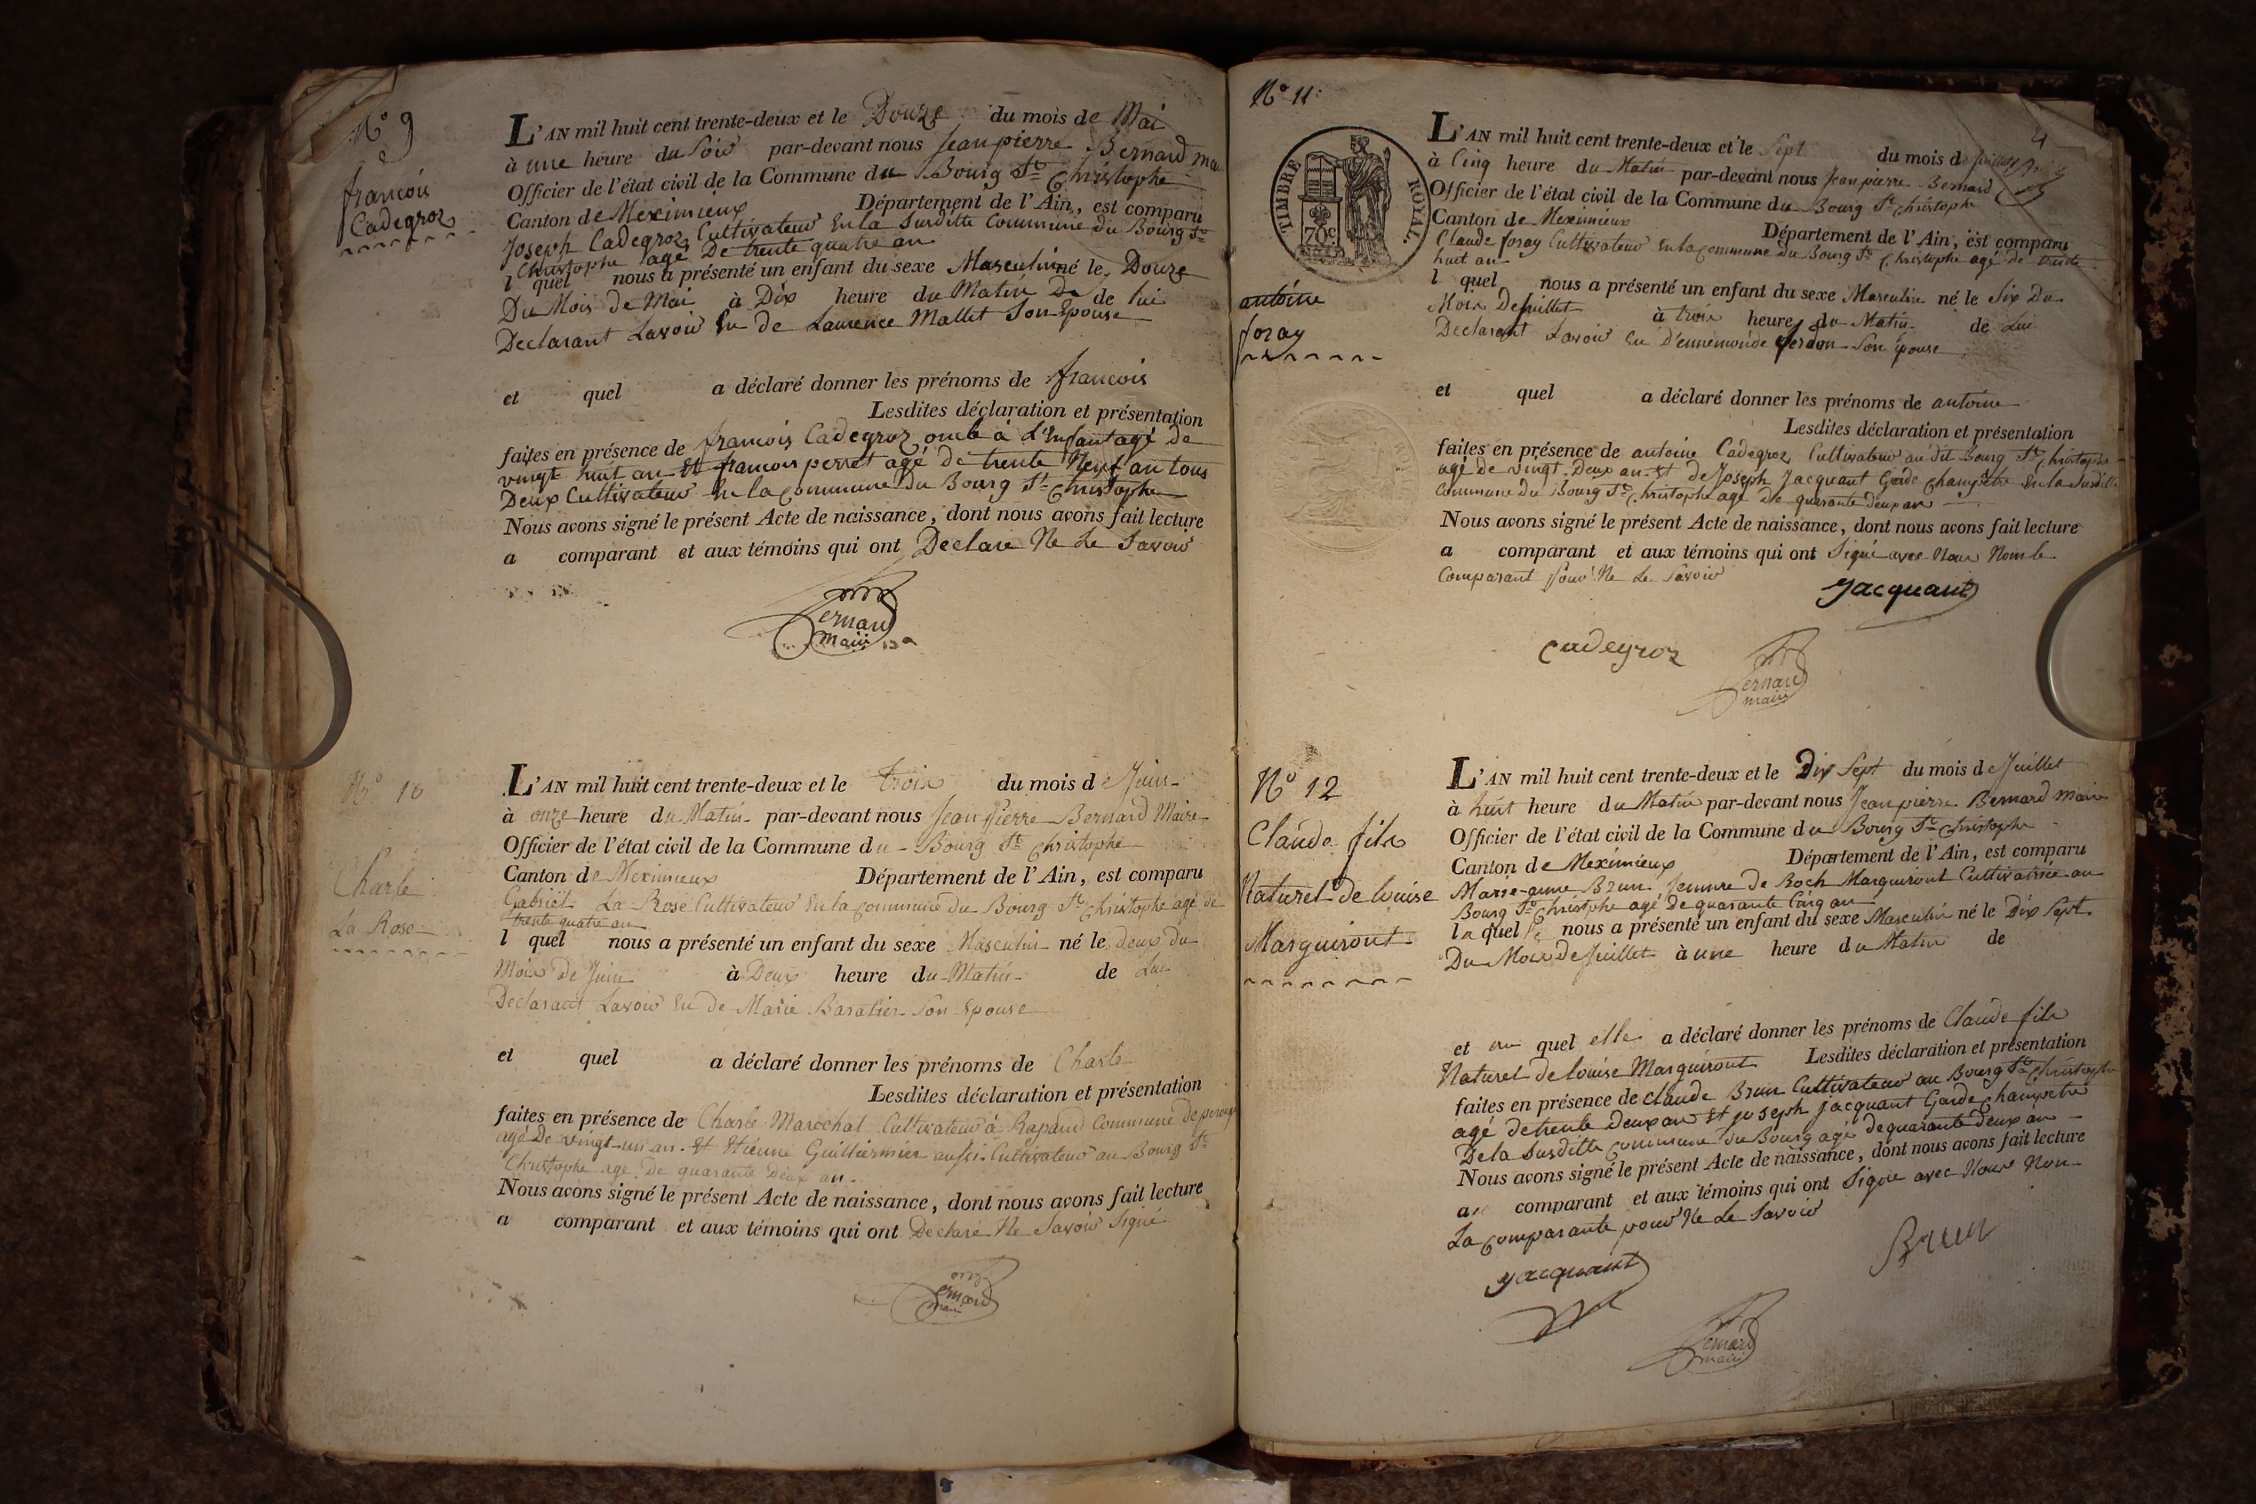 N° 9
françois
Cadegroz
L'AN mil huit cent trente-deux et le Douze du mois de Mai
à une heure du Soir par-devant nous Jean pierre Bernard
Officier de l'état civil de la Commune du Bourg St Christophe
Canton de Meximieux Département de l'Ain, est comparu
Joseph Cadegroz Cultivateur En la Surditte Commune du Bourg St
Christophe agé De trente quatre an
l quel nous a présenté un enfant du sexe Masculin né le Douze
Du Mois de Mai à Dix heure du Matin de lui
Declarant Lavoir Eu de Laurence Mallet Son Epouse
et quel a déclaré donner les prénoms de françois
Lesdites déclaration et présentation
faites en présence de françois Cadegroz oncle à L'Enfant agé de
vingt huit an Et françois perret agé de trente Neuf an tous
Deux Cultivateur En la Commune Du Bourg St Christophe
Nous avons signé le présent Acte de naissance, dont nous avons fait lecture
a comparant et aux témoins qui ont Declare Ne Le Savoir
Bernard
Maire
N° 10
Charle
La Rose
L'AN mil huit cent trente-deux et le trois du mois de Juin
à onze heure du Matin par-devant nous Jean Pierre Bernard Maire
Officier de l'état civil de la Commune du Bourg St Christophe
Canton de Meximieux Département de l'Ain, est comparu
Gabriel La Rose Cultivateur En la Commune du Bourg St Christophe agé de
trente quatre an
l quel nous a présenté un enfant du sexe Masculin né le deux du
Mois de Juin à Deux heure du Matin de Lui
Declarant Lavoir Eu de Marie Baratier Son Epouse
et quel a déclaré donner les prénoms de Charle
Lesdites déclaration et présentation
faites en présence de Charle Marechal Cultivateur à Rapand Commune de perouge
agé De vingt un an Et Etienne Guilliermier aussi Cultivateur au Bourg St
Christophe agé De quarante Deux an
Nous avons signé le présent Acte de naissance, dont nous avons fait lecture
a comparant et aux témoins qui ont Declaré Ne Savoir Signé
Bernard
maire
N° 11
4
TIMBRE ROYAL.
70c
antoine
foray
L'AN mil huit cent trente-deux et le Sept du mois de Juillet
à Cinq heure du Matin par-devant nous Jean pierre Bernard
Officier de l'état civil de la Commune du Bourg St Christophe
Canton de Meximieux Département de l'Ain, est comparu
Claude foray Cultivateur En la Commune du Bourg St Christophe agé de trente
huit an
l quel nous a présenté un enfant du sexe Masculin né le Six Du
Mois De Juillet à trois heure du Matin de Lui
Declarant Lavoir Eu D'ennemonde Son Epouse
et quel a déclaré donner les prénoms de antoine
Lesdites déclaration et présentation
faites en présence de antoine Cadegroz Cultivateur au dit Bourg St Christophe
agé de vingt Deux an Et de Joseph Jacquant Garde Champêtre En la Surditte
Commune du Bourg St Christophe agé De quarante deux an
Nous avons signé le présent Acte de naissance, dont nous avons fait lecture
a comparant et aux témoins qui ont Signé avec Nous Non le
Comparant pour Ne Le Savoir
Jacquant
Cadegroz
Bernard
maire
N° 12
Claude fils
Naturel de louise
Marguiront
L'AN mil huit cent trente-deux et le Dix Sept du mois de Juillet
à huit heure du Matin par-devant nous Jean pierre Bernard Maire
Officier de l'état civil de la Commune du Bourg St Christophe
Canton de Meximieux Département de l'Ain, est comparu
Marie-anne Brun femme de Roch Marguiront Cultivatrice au
Bourg St Christophe agé de quarante Cinq an
la quelle nous a présenté un enfant du sexe Masculin né le Dix Sept
Du Mois de Juillet à une heure du Matin de
et au quel elle a déclaré donner les prénoms de Claude fils
Naturel de louise Marguiront Lesdites déclaration et présentation
faites en présence de Claude Brun Cultivateur au Bourg St Christophe
agé de trente Deux an Et Joseph Jacquant Garde Champetre
De la Susditte Commune du Bourg agé de quarante deux an
Nous avons signé le présent Acte de naissance, dont nous avons fait lecture
a comparant et aux témoins qui ont Signe avec Nous Non
La Comparante pour Ne Le Savoir
Jacquant
Brun
Bernard
maire